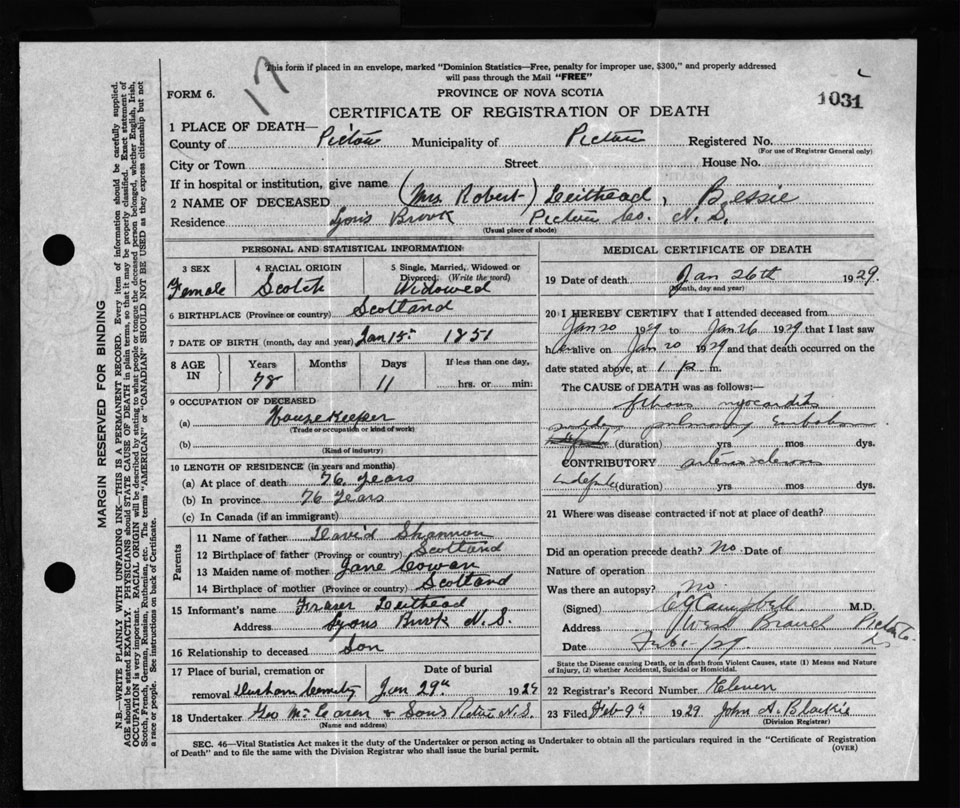 This form if placed in an envelope, marked "Dominion Statistics—Free, penalty for improper use, $300," and properly addressed
will pass through the Mail "FREE"
17
FORM 6.
PROVINCE OF NOVA SCOTIA
1031
CERTIFICATE OF REGISTRATION OF DEATH
1 PLACE OF DEATH—
County of Pictou Municipality of Pictou Registered No.
(For use of Registrar General only)
City or Town Street House No.
If in hospital or institution, give name
2 NAME OF DECEASED (Mrs Robert) Leithead, Bessie
Residence Lyons Brook Pictou Co. N.S.
(Usual place of abode)
PERSONAL AND STATISTICAL INFORMATION
3 SEX
Female
4 RACIAL ORIGIN
Scotch
5 Single, Married, Widowed or
Divorced (Write the word)
Widowed
6 BIRTHPLACE (Province or country) Scotland
7 DATE OF BIRTH (month, day and year) Jan 15 1851
8 AGE IN
Years Months Days If less than one day,
78 11 hrs. or min:
9 OCCUPATION OF DECEASED
(a) House Keeper
(Trade or occupation or kind of work)
(b)
(Kind of industry)
10 LENGTH OF RESIDENCE (in years and months)
(a) At place of death 76 years
(b) In province 76 years
(c) In Canada (if an immigrant)
Parents
11 Name of father David Shannon
12 Birthplace of father (Province or country) Scotland
13 Maiden name of mother Jane Cowan
14 Birthplace of mother (Province or country) Scotland
15 Informant's name Fraser Leithead
Address Lyons Brook N.S.
16 Relationship to deceased Son
17 Place of burial, cremation or Date of burial
removal Durham Cemetry Jan 29th 1929
18 Undertaker Geo McLaren & Sons Pictou N.S.
(Name and address)
MEDICAL CERTIFICATE OF DEATH
19 Date of death Jan 26th 1929.
(Month, day and year)
20 I HEREBY CERTIFY that I attended deceased from
Jan 20 1929 to Jan 26 1929 that I last saw
her alive on Jan 20 1929 and that death occurred on the
date stated above, at 1 p m.
The CAUSE of DEATH was as follows:—
fibrous myocarditis
pulmonary embolism
(duration) yrs mos dys.
CONTRIBUTORY arterio sclerosis
(duration) yrs mos dys.
21 Where was disease contracted if not at place of death?
Did an operation precede death? No Date of
Nature of operation
Was there an autopsy? no
(Signed) Campbell M.D.
Address West Branch Pictou Co
Date Feb /29
State the Disease causing Death, or in death from Violent Causes, state (1) Means and Nature
of Injury, (2) whether Accidental, Suicidal or Homicidal.
22 Registrar's Record Number Eleven
23 Filed Feb 9th 1929 John A. Blaikie
(Division Registrar)
SEC. 46—Vital Statistics Act makes it the duty of the Undertaker or person acting as Undertaker to obtain all the particulars required in the "Certificate of Registration
of Death" and to file the same with the Division Registrar who shall issue the burial permit.
(OVER)
MARGIN RESERVED FOR BINDING
N.B.—WRITE PLAINLY WITH UNFADING INK—THIS IS A PERMANENT RECORD. Every item of information should be carefully supplied.
AGE should be stated EXACTLY. PHYSICIANS should STATE CAUSE OF DEATH in plain terms, so that it may be properly classified. Exact statement of
OCCUPATION is very important. RACIAL ORIGIN will be described by stating to what people or tongue the deceased person belonged, whether English, Irish,
Scotch, French, German, Russian, Ruthenian, etc. The terms "AMERICAN" or "CANADIAN" SHOULD NOT BE USED as they express citizenship but not
a race or people. See instructions on back of Certificate.